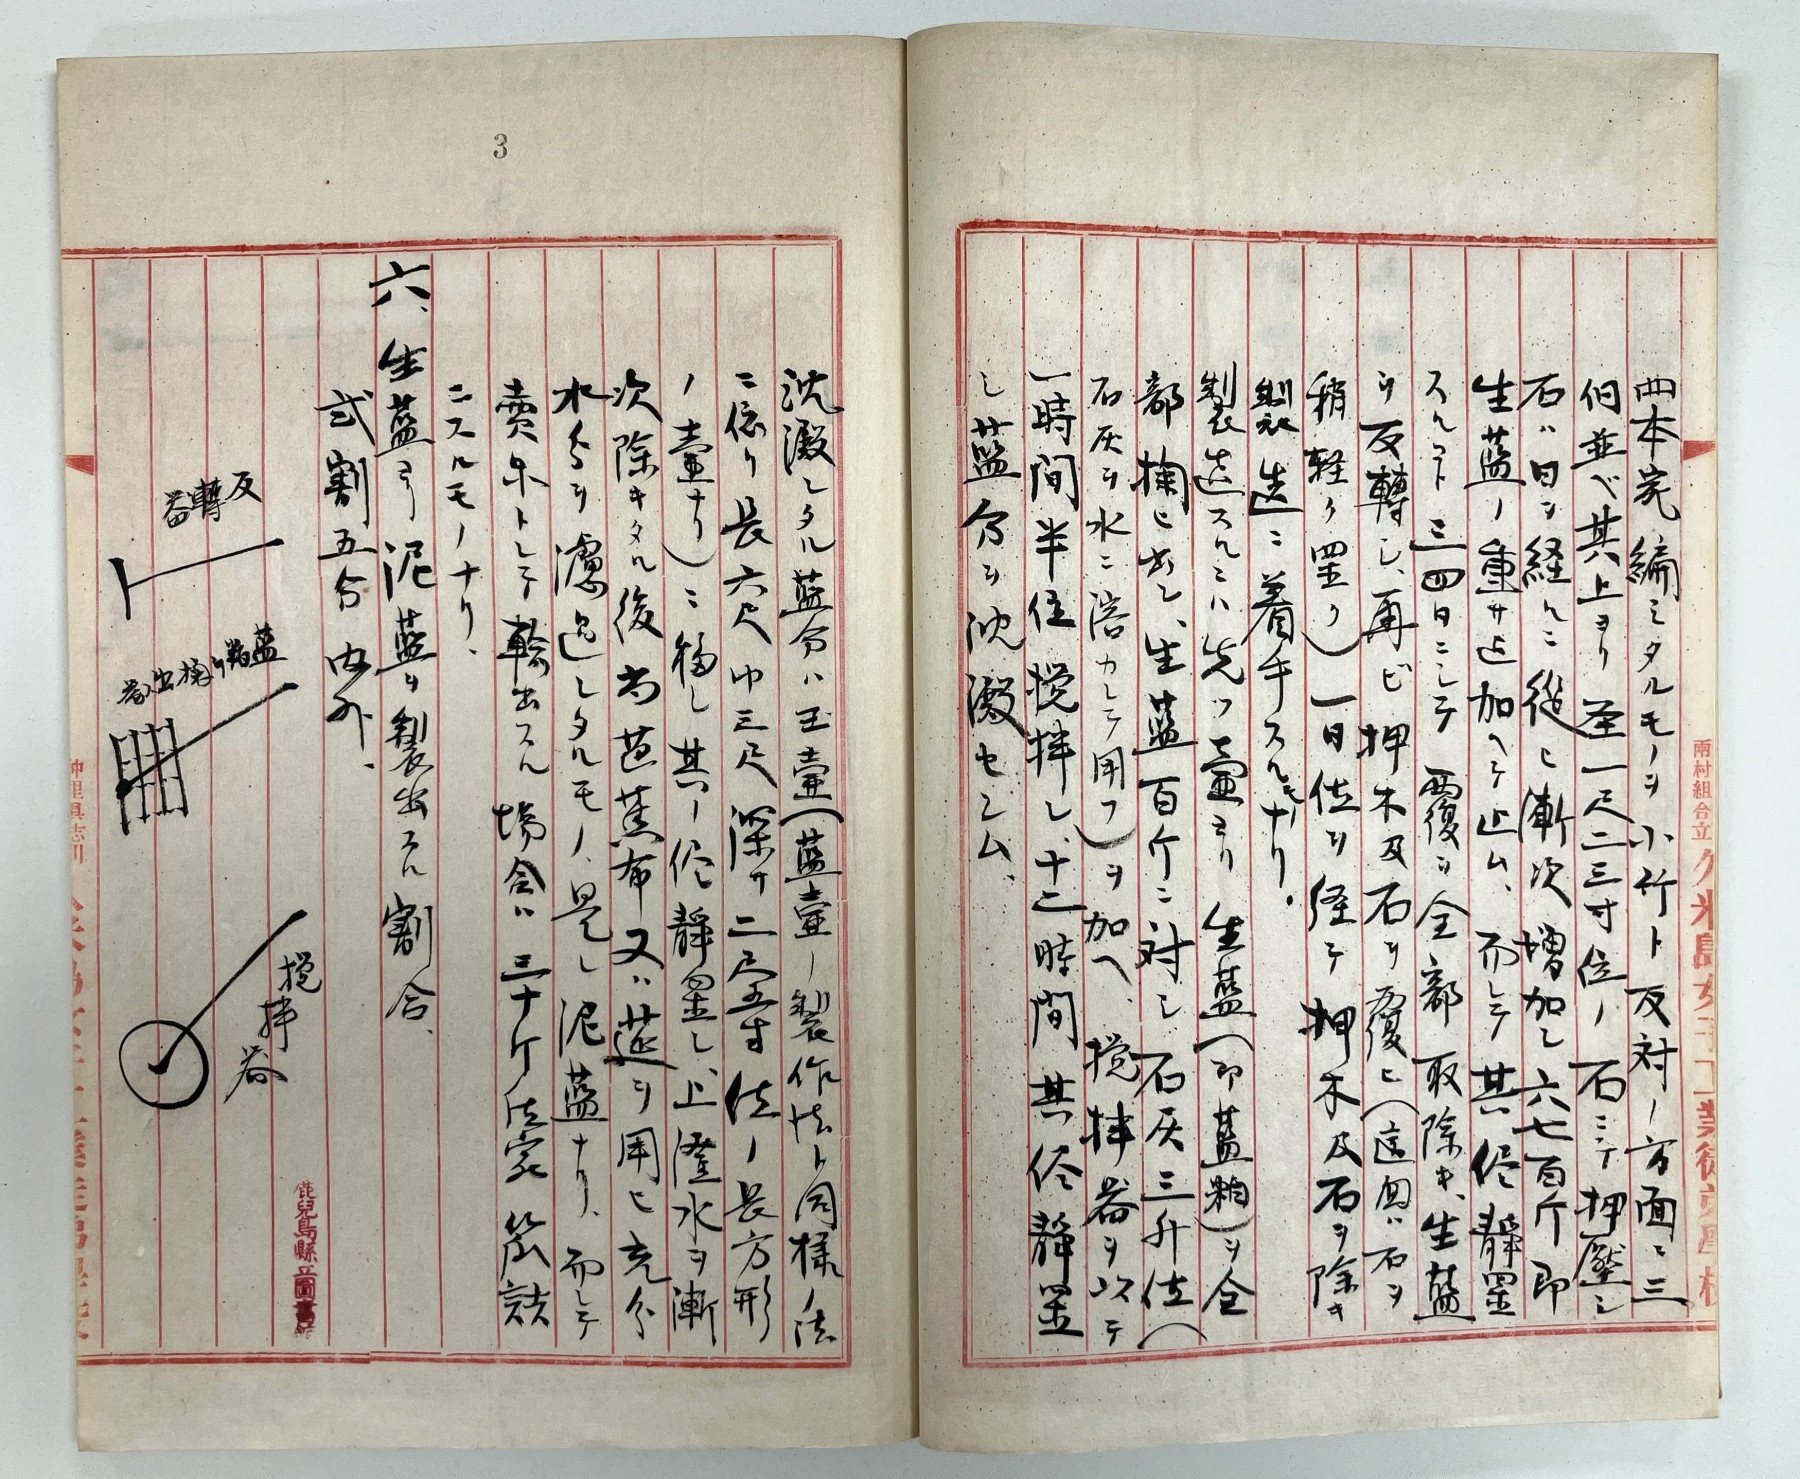 四本宛編ミタルモノヲ小竹ト反対ノ方面ニ三
個並べ其上ヨリ圣一尺二三寸位ノ石ニテ押壓シ
石ハ日ヲ経ルニ従ヒ漸次増加シ六七百斤即
生藍ノ重サ迄加ヘテ止ム、而シテ其侭静置
スルコト三四日ニシテ覆ヲ全部取除キ、生藍
ヲ反轉シ、再ビ押木及石ヲ覆ヒ(這回ハ石ヲ
稍軽ク置ク)一日位ヲ経テ押木及石ヲ除キ
製造ニ着手スルモノナリ.
製造スルニハ先ツ壷ヨリ生藍(即藍粕)ヲ全
部掬ヒ出シ、生藍百斤ニ対シ石灰三升位(
石灰ヲ水ニ溶カシテ用フ)ヲ加ヘ、攪拌器ヲ以テ
一時間半位攪拌シ、十二時間其侭静置
シ藍分ヲ沈澱セシム、
3
沈澱シタル藍分ハ玉壷(藍壷ノ製作法ト同様ノ法
ニ依リ長六尺巾三尺深サ二尺五寸位ノ長方形
ノ壷ナリ)ニ移シ其ノ侭静置シ、上澄水ヲ漸
次除キタル後尚芭蕉布又ハ莚ヲ用ヒ充分
水分ヲ濾過シタルモノ、是レ泥藍ナリ、而シテ
賣品トシテ輸出スル場合ハ三十斤位宛笊詰
ニスルモノナリ、
六、生藍ヨリ泥藍ヲ製出スル割合、
弐割五分内外、
反轉器
藍粕掬出器
攪拌器
鹿兒島縣立圖書館
兩村組合立久米島女子工業徒弟學校
仲里具志川